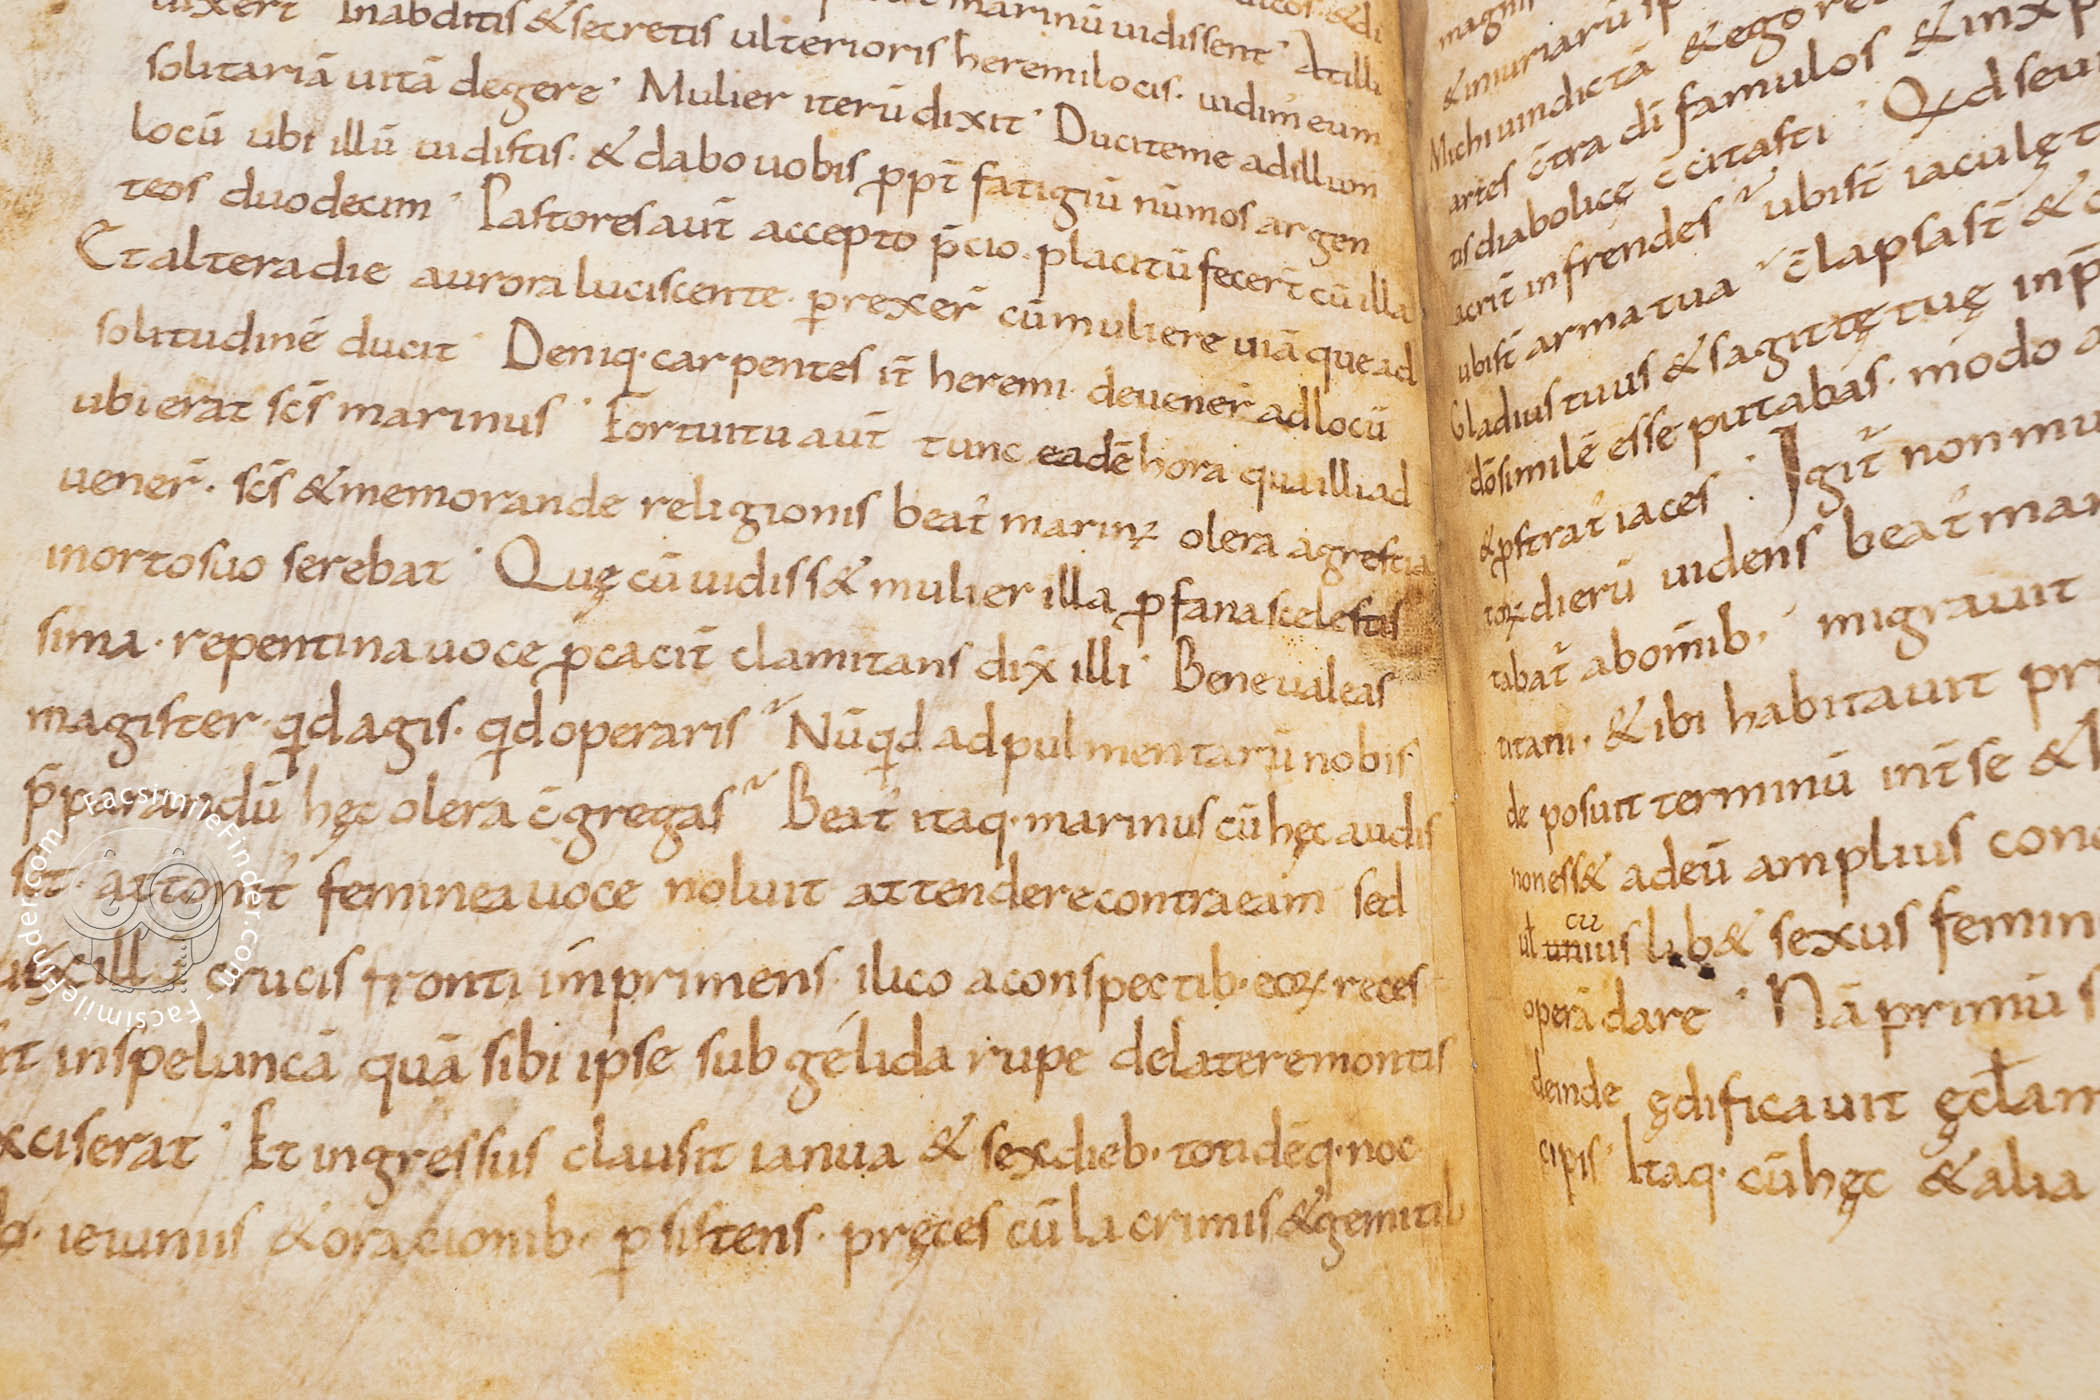 marinū uidissent Atilli
uixert̄ Inabditis & secretis ulterioris heremi locis. uidim eum
solitariā uitā degere Mulier iterū dixit Duciteme adillum
locū ubi illū uidistis. & dabo uobis ꝓpt̄ fatigiū nūmos argen
teos duodecim Pastores aut̄ accepto p̄cio. placitū fecert̄ cū illa
Et altera die aurora luciscente. ꝑrexer̄ cū muliere uiā que ad
solitudinē ducit Deniq· carpentes it̄ heremi. deuener̄ adlocū
ubi erat sc̄s marinus Fortuitu aut̄ tunc eadē hora qua illi ad
uener̄. sc̄s & memorande religionis beat᾽ marinꝰ olera agrestia
inorto suo serebat Quę cū uidiss& mulier illa ꝓfana scelestis
sima. repentina uoce ꝓcacit̄ clamitans dix̄ illi Bene ualeas
magister. qd agis. qd operaris Nūqd ad pulmentariū nobis
p̄parandū hęc olera c̄gregas Beat᾽ itaq· marinus cū hęc audis
set. attonit᾽ feminea uoce noluit attendere contra eam sed
crucis fronti imprimens. ilico a conspectib· eoꝝ reces
it inspeluncā quā sibi ipse sub gélida rupe delatere montis
xciserat Et ingressus clausit ianua & sex dieb· totidēq· noc
ieiuniis & oracionib· ꝑsistens. pręces cū lacrimis & gemitib
& iniuriarū
Michi uindictā & ego
artes c̄tra dī famulos & inxp
tis diabolicę c̄citasti Qd seui
acrit̄ infrendes ubi st̄ iaculę t
ubi st̄ arma tua c̄lapsa st̄ &
Gladius tuus & sagittę tuę inp̄
dō similē esse putabas. modo
& ꝓstrat᾽ iaces Igit̄ non mu
toꝝ dierū uidens beat᾽ mar
tabat̄ abomīib· migrauit
utam. & ibi habitauit pr
de posuit terminū int̄ se &
non ess& adeū amplius con
cu
ul uniuis lib& sexus femin
operā dare Nā primū s
deinde ędificauit ęcl̄am
cipis Itaq· cū hęc & alia
FacsimileFinder.com - FacsimileFinder.com -